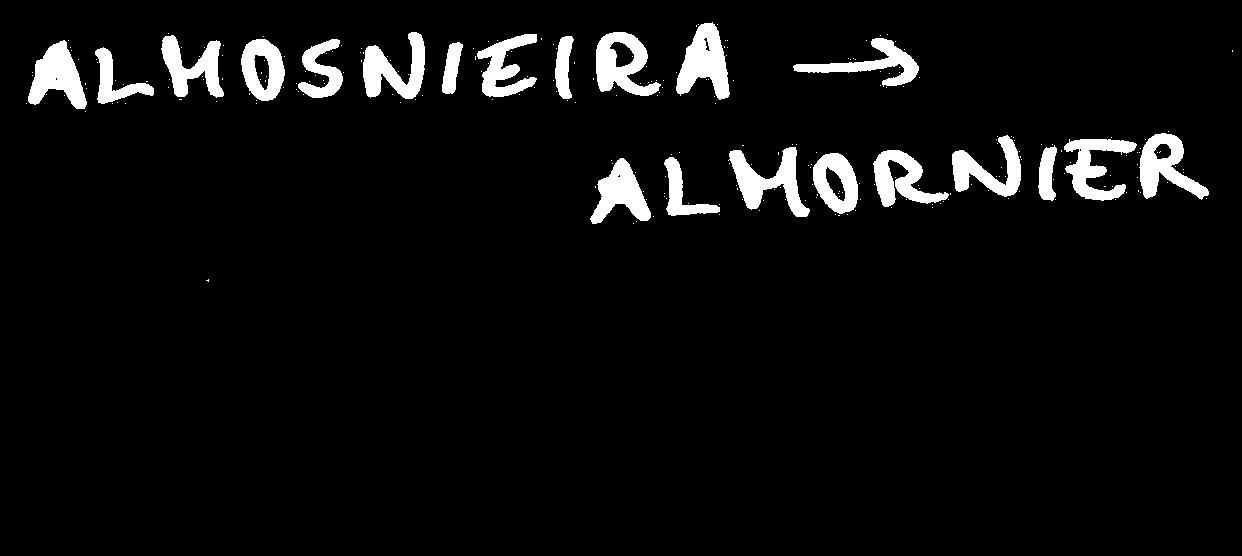 ALMOSNIEIRA →
ALMORNIER